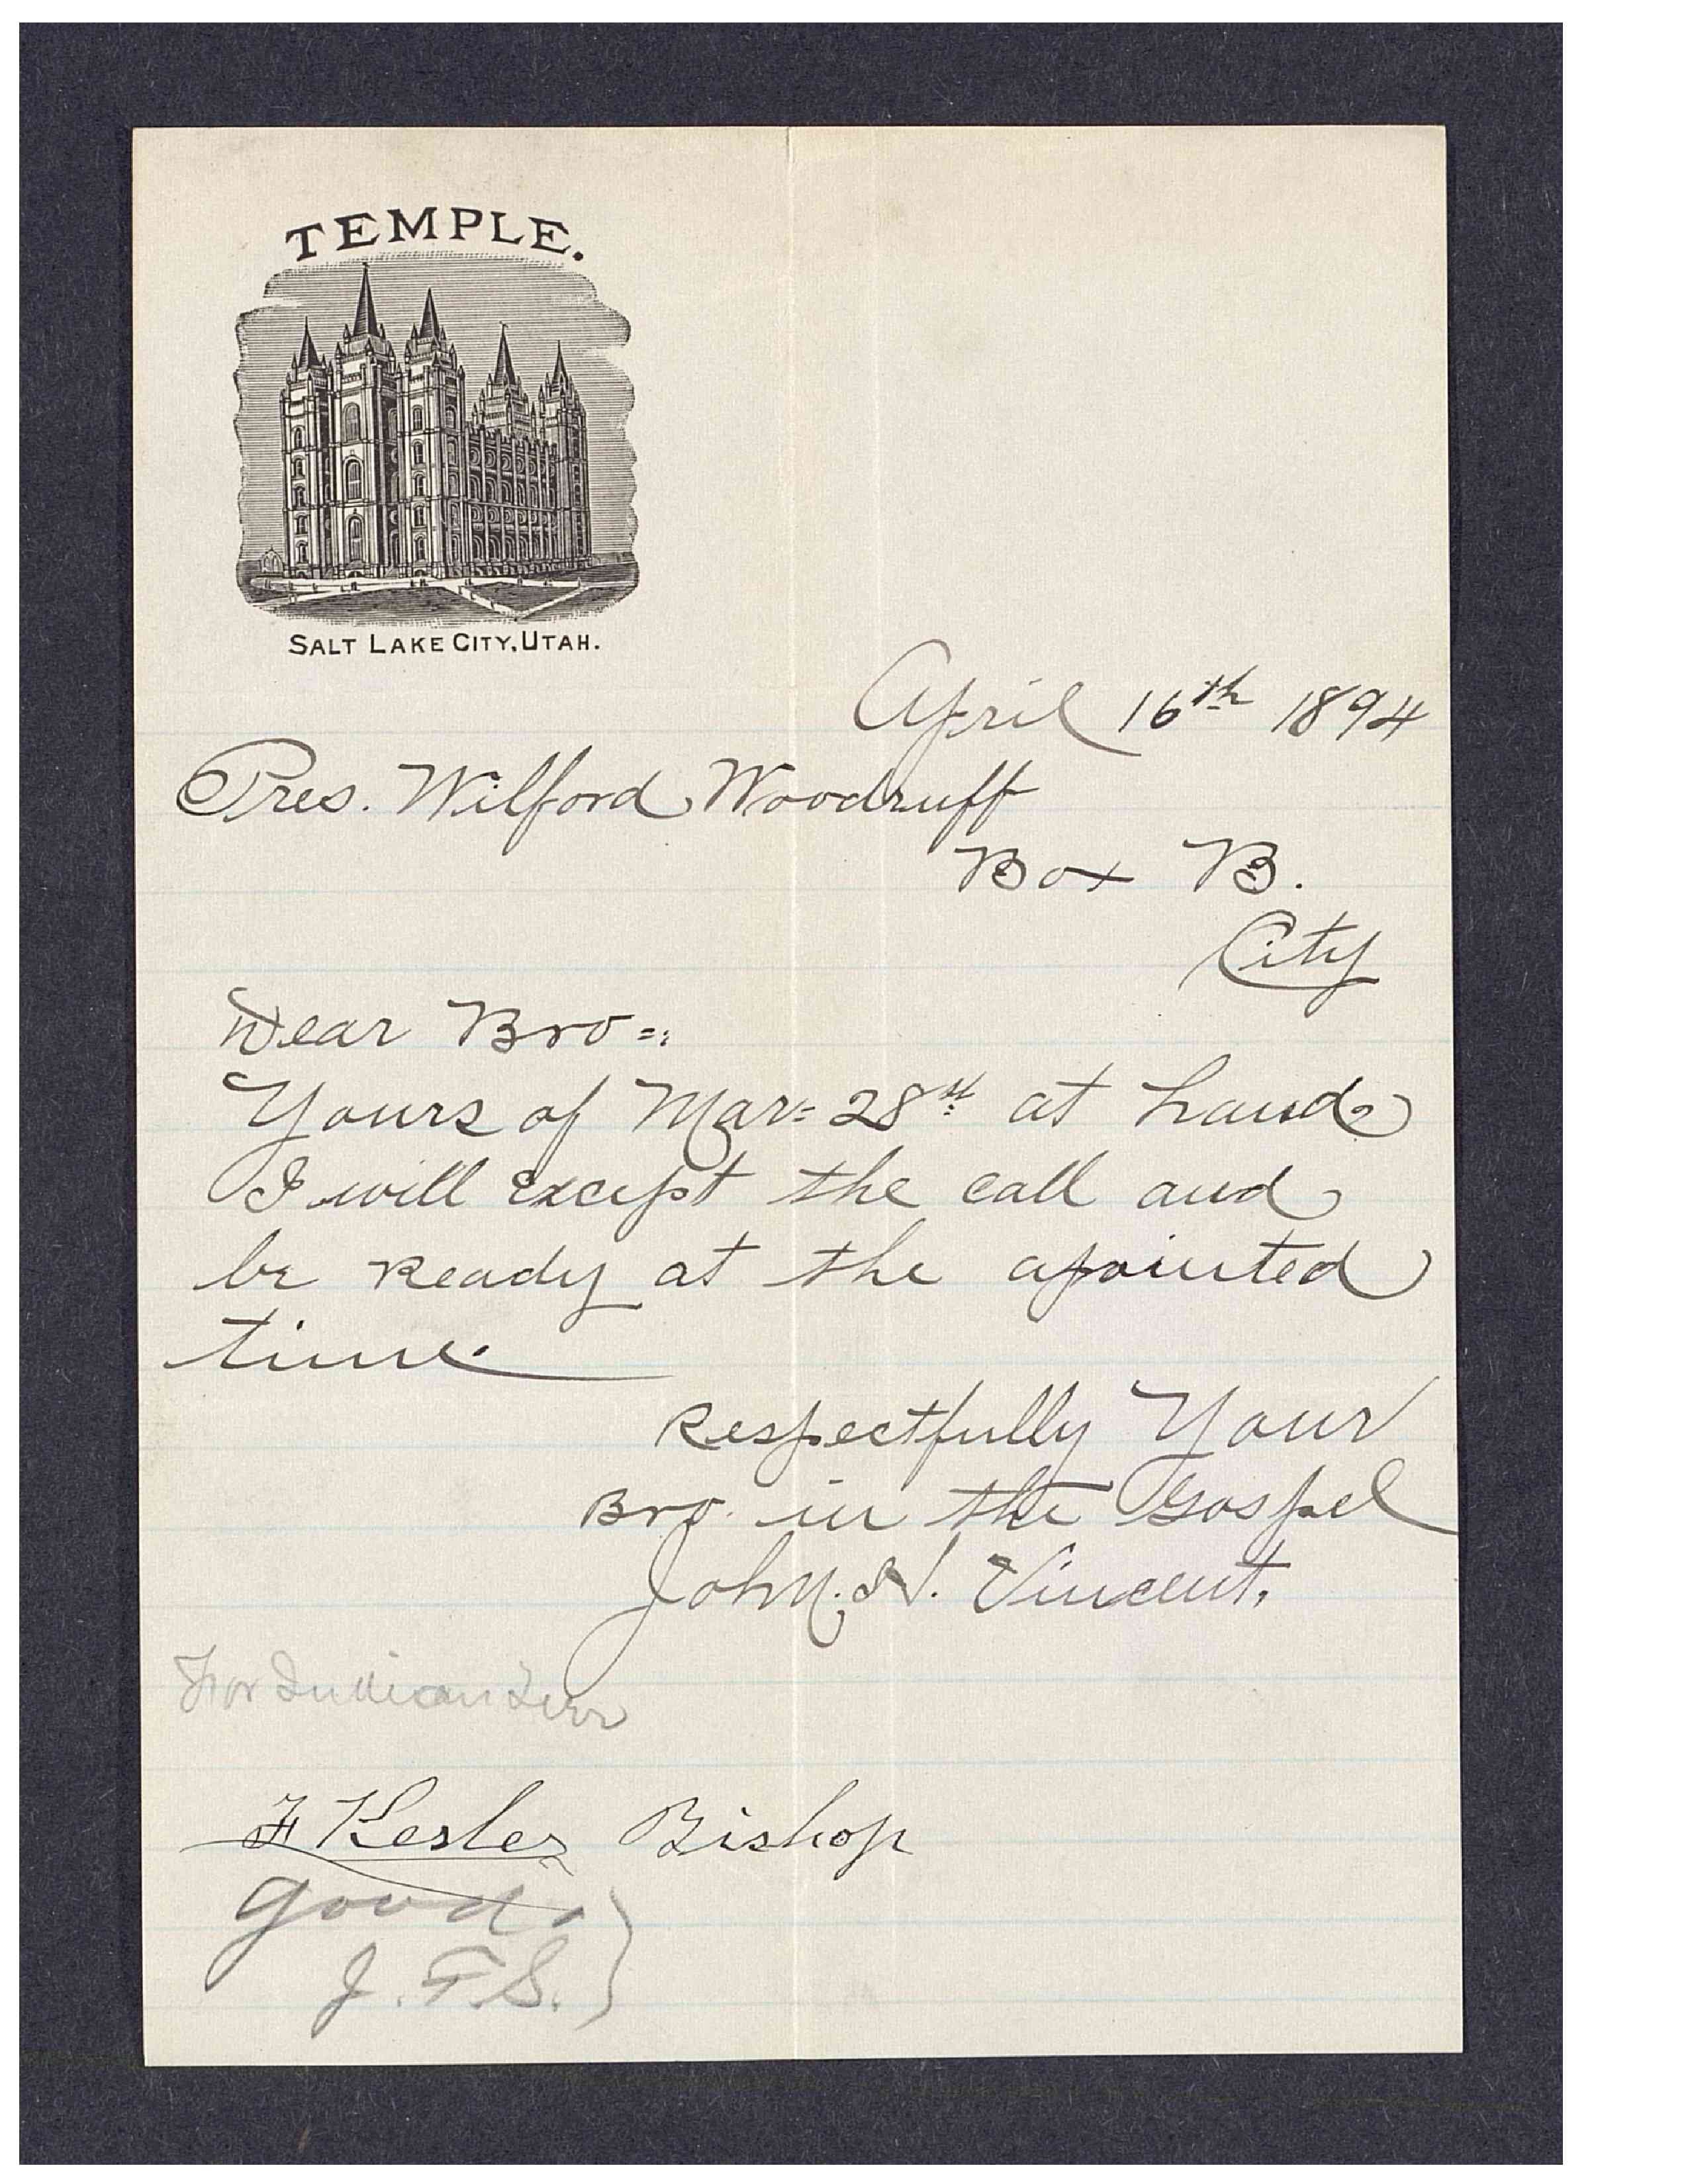 TEMPLE.
SALT LAKE CITY, UTAH.
April 16th 1894
Pres. Wilford Woodruff
Box B.
City
Dear Bro=:
Yours of Mar= 28st at hand
I will except the call and
be Ready at the apointed
time.
Respectfully Your
Bro. in the Gospel
John. Vincent.
For Indian Terr
F Kesler Bishop
Good.
J. F. S.